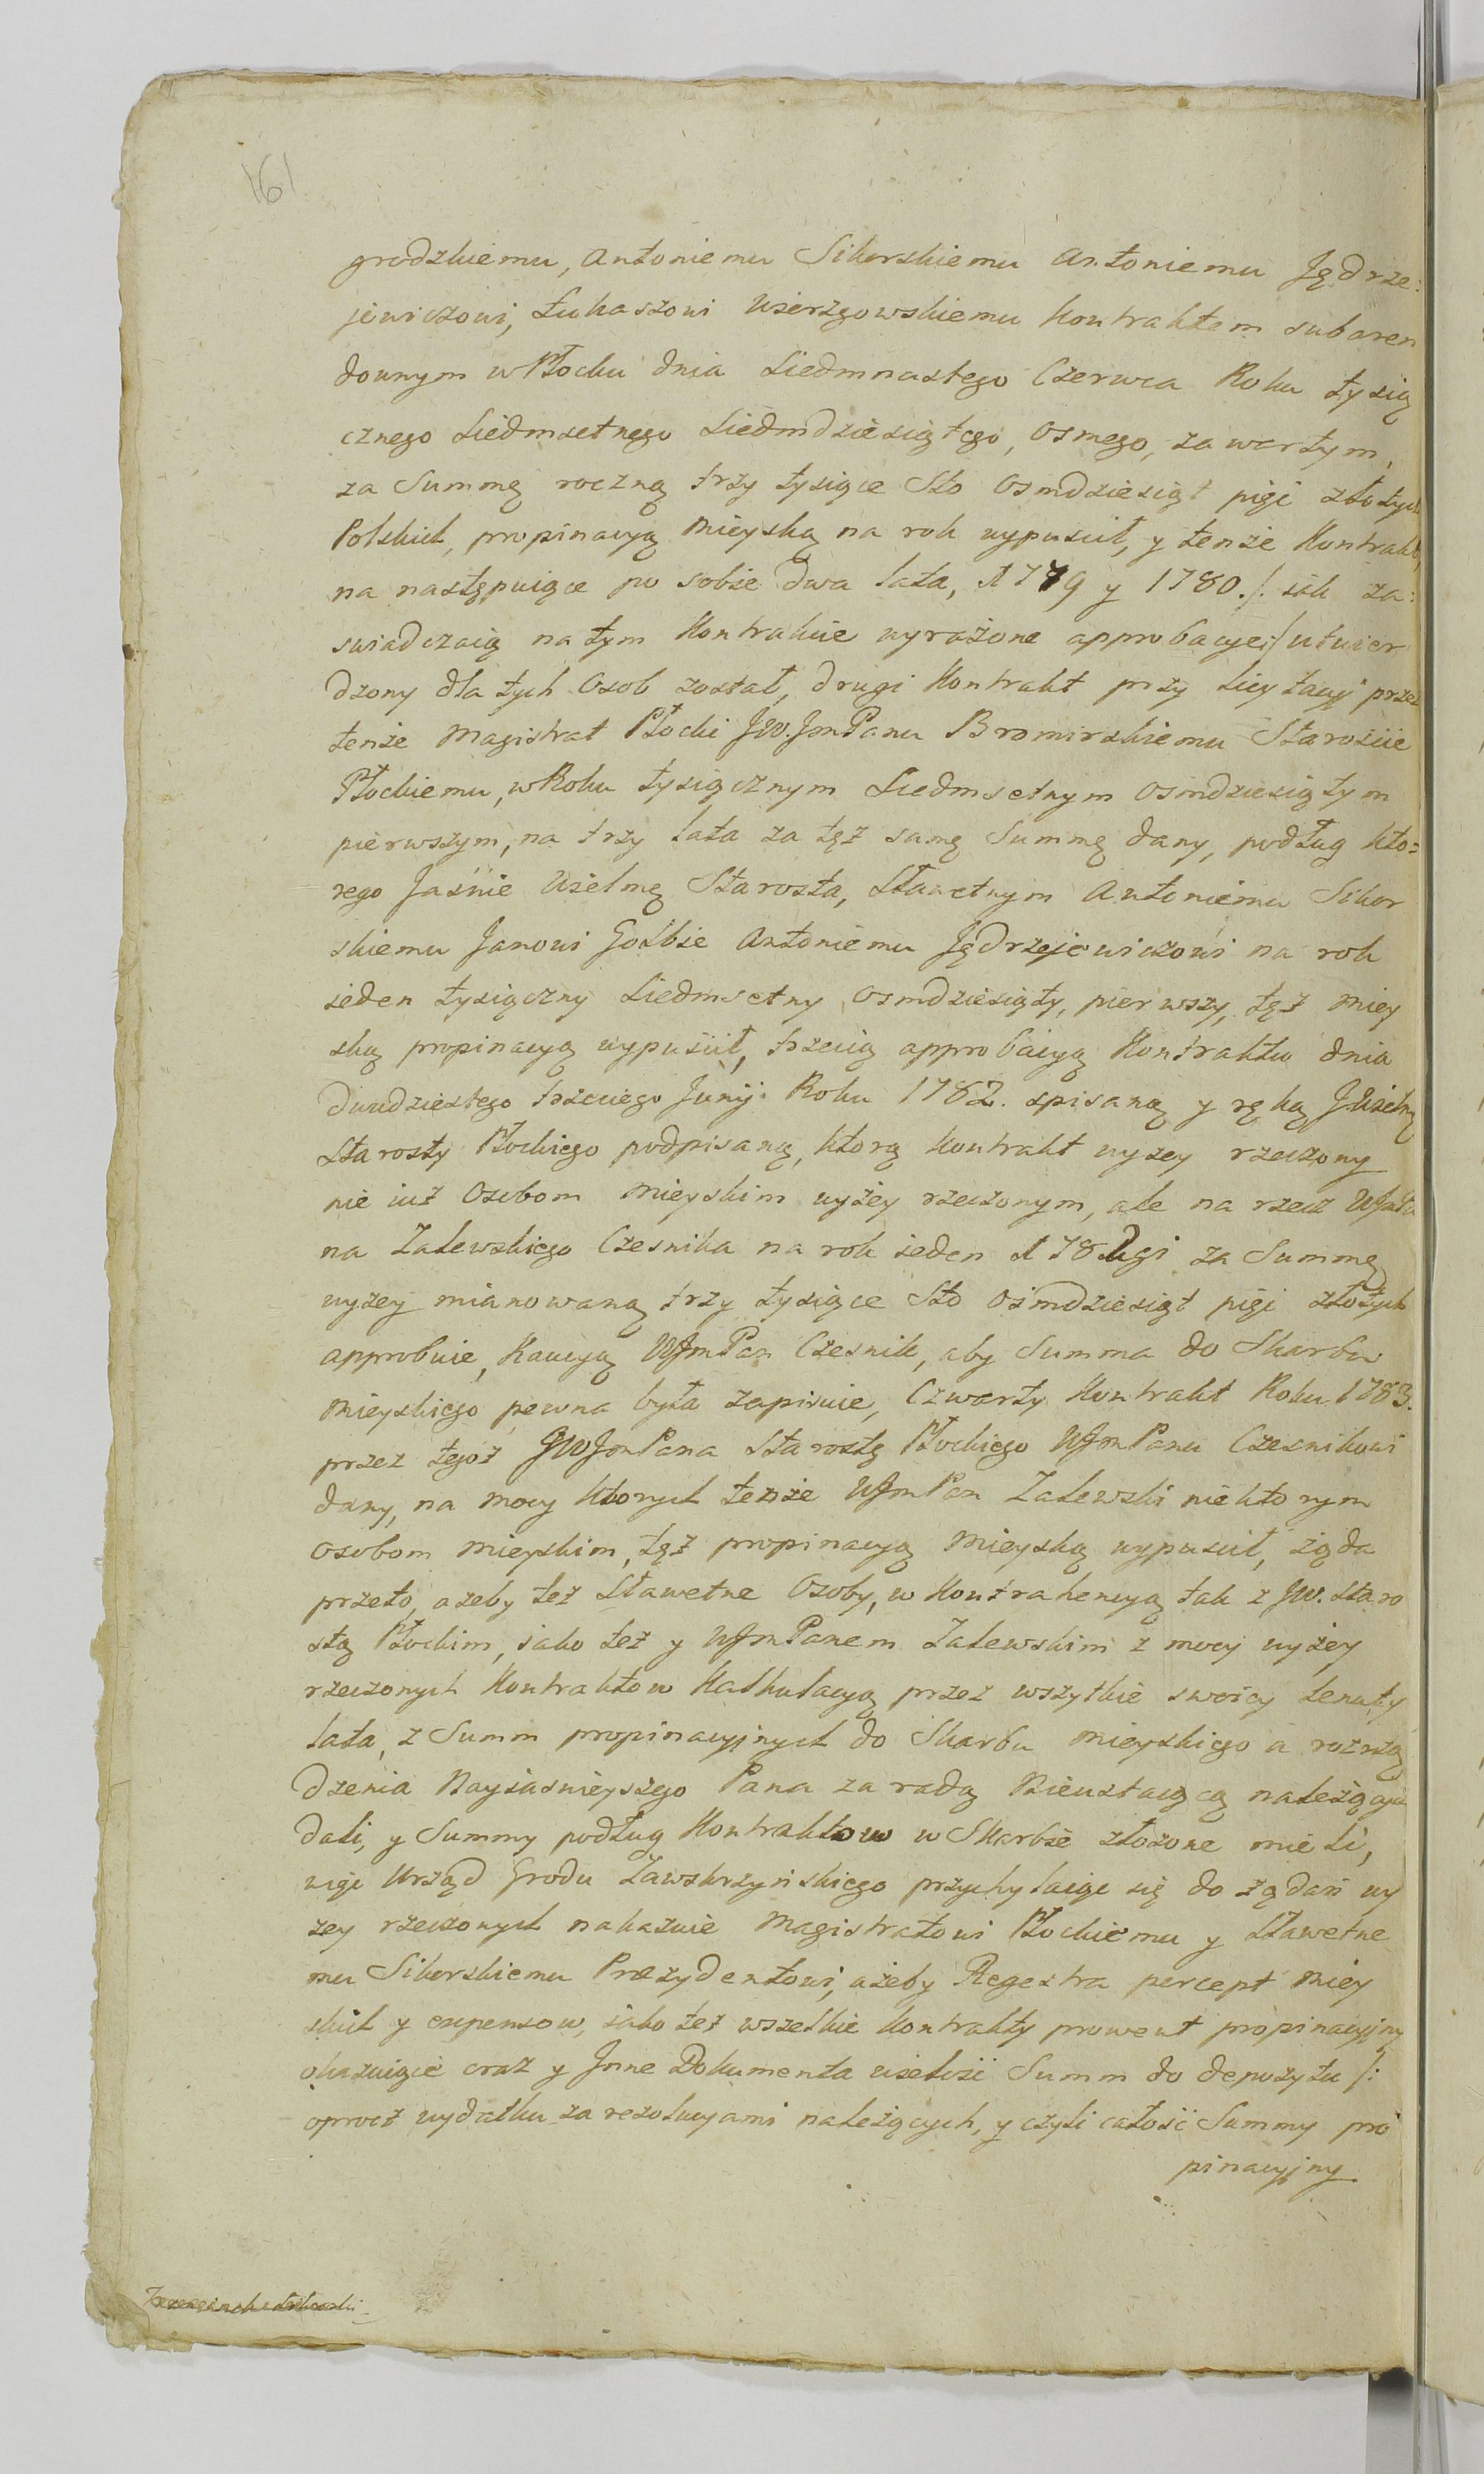 161
grodzkiemu, Antoniemu Sikorskiemu Antoniemu Jędrze:
jewiczowi, Łukaszowi Wierzgowskiemu Kontraktem subaren
downym w Płocku dnia Siedmnastego Czerwca Roku tysią
cznego Siedmsetnego Siedmdziesiątego, osmego, zawartym,
za Summę roczną trzy tysiące Sto Osmdziesiąt pięć złotych
Polskich, propinacyą Mieyską na rok wypuscił, y tenże Kontrakt,
na następuiące po sobie dwa lata, 1779 y 1780./: iak za:
swiadczaią na tym Kontrakcie wyrażone approbacye:/ utwier
dzony dla tych Osob został, drugi Kontrakt przy licytacyi przez
tenże Magistrat Płocki JW. JmPanu Bromirskiemu Staroście
Płockiemu, w Roku tysiącznym Siedmsetnym Osmdziesiątym
pierwszym, na trzy lata za tęż samę Summę dany, podług kto=
rego Jaśnie Wielmą Starosta, Sławetnym Antoniemu Sikor
skiemu Janowi Gołbie Antoniemu Jędrzejewiczowi na rok
ieden tysiączny Siedmsetny Osmdziesiąty, pierwszy, tęż Miey
ską propinacyą wypuścił, trzecią approbacyą Kontraktu dnia
dwudziestego trzeciego Junij Roku 1782. spisaną y ręką JWielmą
Starosty Płockiego podpisaną, ktorą Kontrakt wyzey rzeczony
nie iuż Osobom Mieyskim wyżey rzeczonym, ale na rzecz WJmPa
na Zalewskiego Czesnika na rok ieden 1782gi za Summę
wyzey mianowaną trzy tysiące Sto Ośmdziesiąt pięć złotych
approbuie, Kaucyą WJmPan Czesnik, aby Summa do Skarbu
Mieyskiego pewna była zapisuie, Czwarty Kontrakt Roku 1783.
przez tegoż JWJmPana Starostę Płockiego WJmPanu Czesnikowi
dany, na mocy ktorych tenże WJmPan Zalewski niektorym
Osobom Mieyskim, tęż propinacyą Mieyską wypuscił, żąda
przeto, ażeby też Sławetne Osoby, w Kontrahencyą tak z JW. Staro
stą Płockim, iako też y WJmPanem Zalewskim z mocy wyżey
rzeczonych Kontraktow Kalkulacyą przez wszytkie swoicy tenuty
lata, z Summ propinacyjnych do Skarbu Mieyskiego a rozrzą
dzenia Nayiasnieyszego Pana za radą Nieustaiącą należącą
dali, y Summy podług Kontraktow w Skarbie złożone mieli,
więc Urząd Grodu Zawskrzyńskiego przychylaiąc się do żądań wy
zey rzeczonych nakazuie Magistratowi Płockiemu y Sławetne
mu Sikorskiemu Prezydentowi, ażeby Regestra percept Miey
skich y expensow, iako też wszelkie Kontrakty prowent propinacyjny
okazuiące oraz y Jnne Dokumenta wielość Summ do depozytu /:
oprocz wydatku za rezolucyami należących, y czyli całość Summy pro
pinacyjny